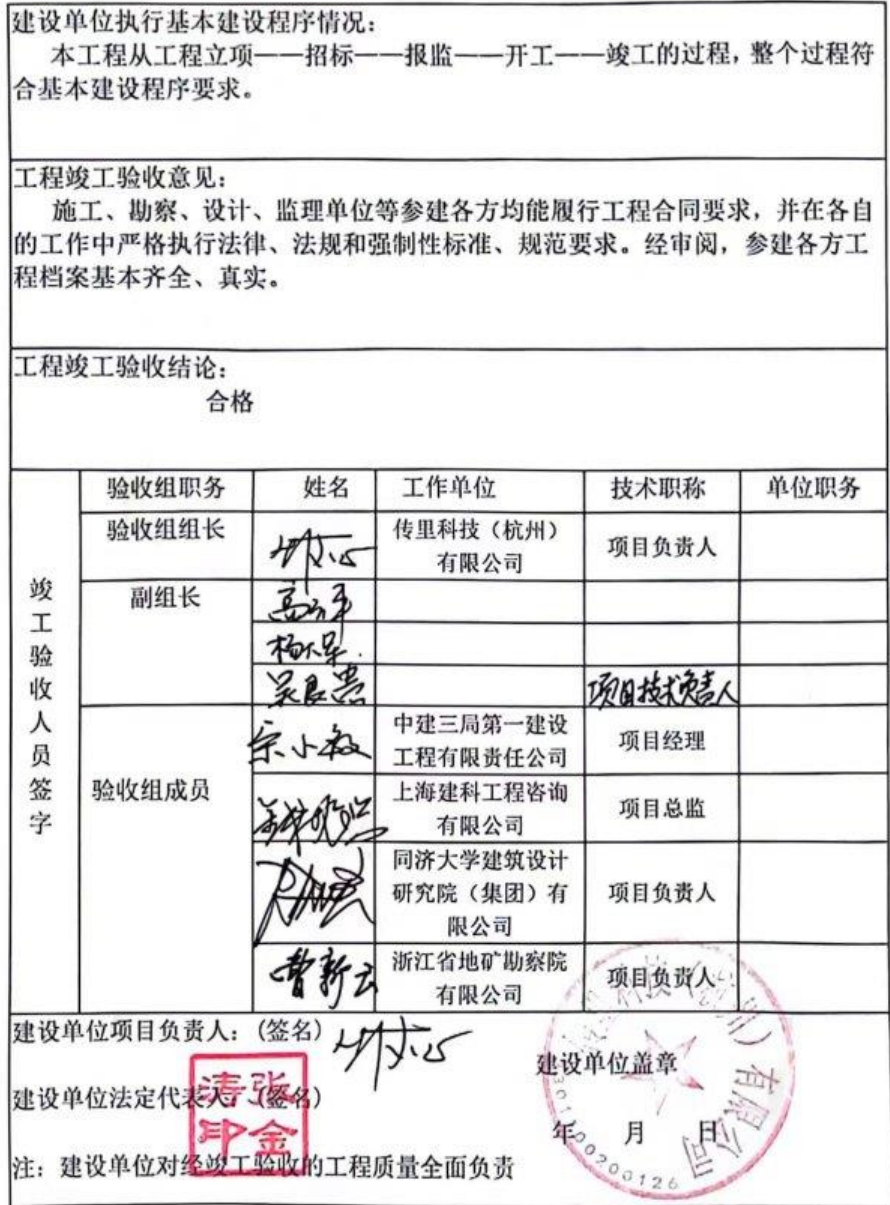 建设单位执行基本建设程序情况：
本工程从工程立项——招标——报监——开工——竣工的过程，整个过程符
合基本建设程序要求。
工程竣工验收意见：
施工、勘察、设计、监理单位等参建各方均能履行工程合同要求，并在各自
的工作中严格执行法律、法规和强制性标准、规范要求。经审阅，参建各方工
程档案基本齐全、真实。
工程竣工验收结论：
合格
竣工验收人员签字
验收组职务 姓名 工作单位 技术职称 单位职务
验收组组长 传里科技（杭州）
有限公司 项目负责人
副组长
吴良贵 项目技术负责人
验收组成员
宗小敏 中建三局第一建设
工程有限责任公司 项目经理
上海建科工程咨询
有限公司 项目总监
同济大学建筑设计
研究院（集团）有
限公司 项目负责人
曹新云 浙江省地矿勘察院
有限公司 项目负责人
建设单位项目负责人：(签名)
建设单位盖章
建设单位法定代表人：(签名)
张金涛印
年 月 日
注：建设单位对经竣工验收的工程质量全面负责